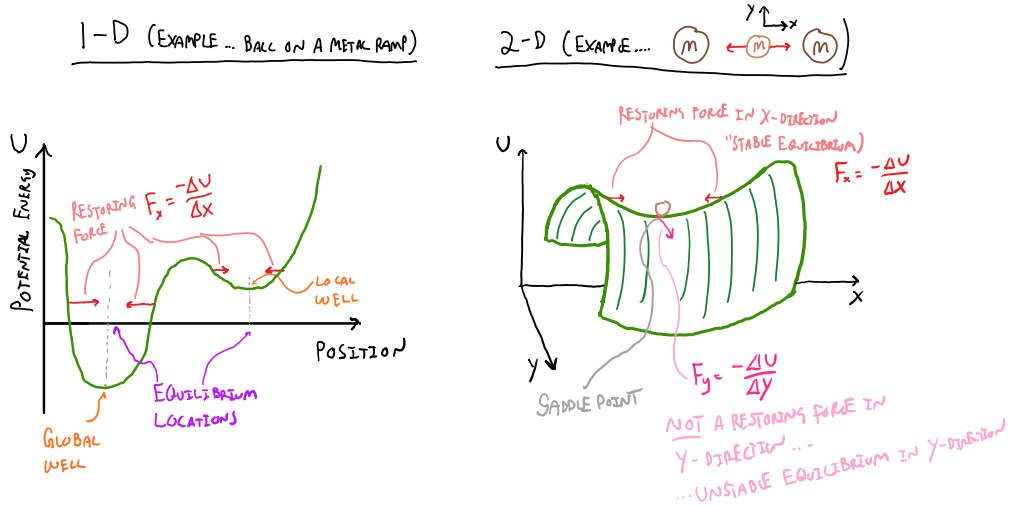 1-D (EXAMPLE... BALL ON A METAL RAMP)
U
POTENTIAL ENERGY
RESTORING
FORCE
Fx = -ΔU/ΔX
LOCAL
WELL
POSITION
EQUILIBRIUM
LOCATIONS
GLOBAL
WELL
2-D (EXAMPLE.... m m m )
Y
X
U
RESTORING FORCE IN X-DIRECTION
"STABLE EQUILIBRIUM)
Fx = -ΔU/ΔX
X
Y
SADDLE POINT
Fy = -ΔU/ΔY
NOT A RESTORING FORCE IN
Y-DIRECTION...
...UNSTABLE EQUILIBRIUM IN Y-DIRECTION